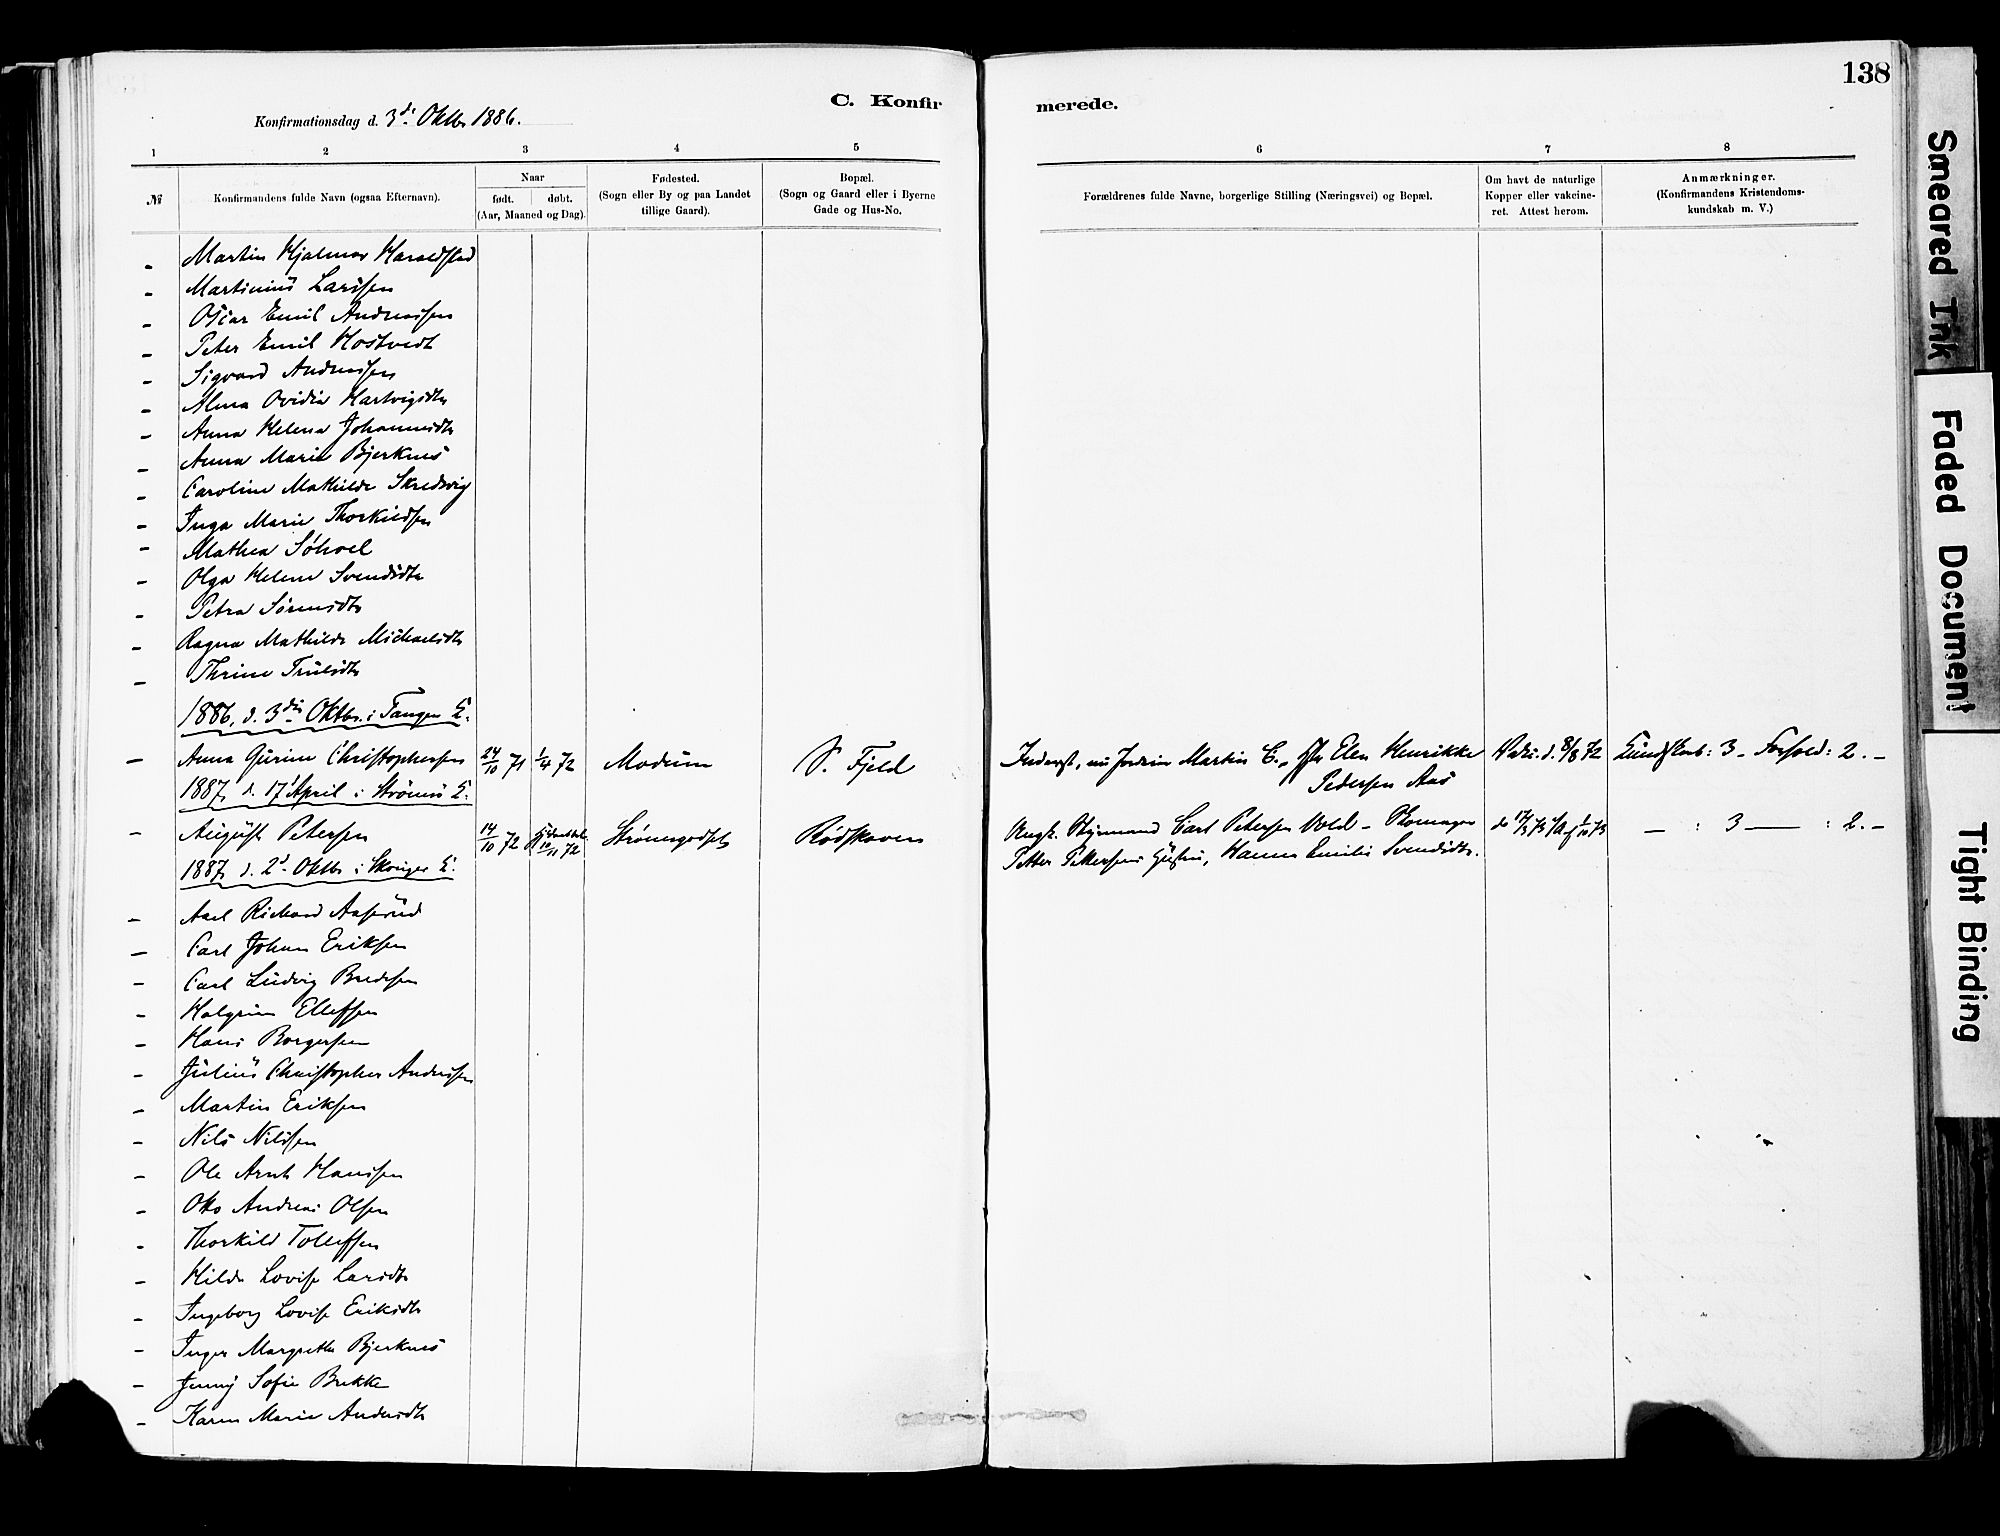 138
C. Konfirmerede.
Konfirmationsdag d. 3di Oktbr 1886.
1 2 3 4 5 6 7 8
№
Konfirmandens fulde Navn (ogsaa Efternavn).
Naar
født. døbt.
(Aar, Maaned og Dag).
Fødested.
(Sogn eller By og paa Landet
tillige Gaard).
Bopæl.
(Sogn og Gaard eller i Byerne
Gade og Hus-No.
Forældrenes fulde Navne, borgerlige Stilling (Næringsvei) og Bopæl.
Om havt de naturlige
Kopper eller vakcine-
ret. Attest herom.
Anmærkninger.
(Konfirmandens Kristendoms-
kundskab m. V.)
- Martin Hjalmar Haraldstad
- Martinius Larssen
- Oscar Emil Andreassen
- Peter Emil Hostvedt
- Sigvard Andreassen
- Alma Ovidia Hartvigsdtr
- Anna Helena Johannesdtr
- Anna Marie Bjerknes
- Caroline Mathilde Skredsvig
- Inga Marie Thorkildsen
- Mathea Söhoel
- Olga Helene Svendsdtr
- Petra Sörensdtr
- Ragna Mathilde Michaelsdtr
- Thrine Trulsdtr
1886, d. 3die Oktbr. i Tangen K.
- Anna Gurine Christophersen 24/10 71 1/4 72 Modum S. Fjeld Inderst, nu Martin C. Elen Henrikke Vakc. d. 8/8 72 Kundskab: 3 - Forhold: 2. -
Pedersen Aas
1887, d. 17 April i Strömsö K.
- August Petersen 14/10 72 10/11 72 Strömsgodset Rödskoven Ungk. Styrmand Carl Petersen Vold - — : 3 — : 2. -
Petter Pettersens Hanna Emilie Svendsdtr.
1887, d. 2d Oktbr i Skouger K.
- Axel Richard Aaserud
- Carl Johan Eriksen
- Carl Ludvig Bredesen
- Halgrim Ellefsen
- Hans Borgersen
- Julius Christopher Andersen
- Martin Eriksen
- Nils Nilssen
- Ole Arnt Hanssen
- Otto Andreas Olsen
- Thorkild Tollefsen
- Hilda Lovise Larsdtr
- Ingeborg Lovise Eriksdtr
- Inger Margrethe Bjerknes
- Jenny Sofie Brekke
- Karen Marie Andersdtr
Smeared Ink
Faded Document
Tight Binding